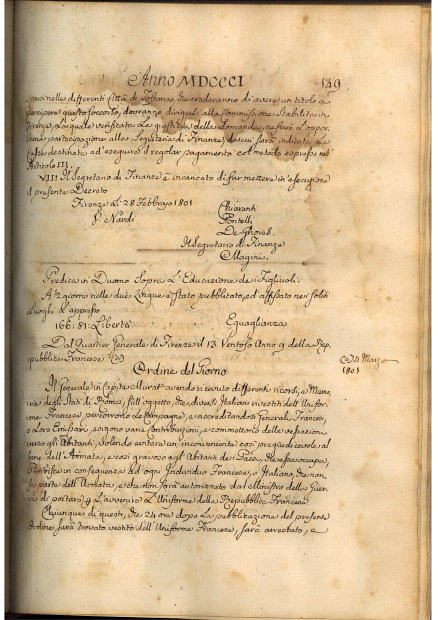 Anno MDCCCI
149
sparsi nelle differenti Città di Toscana, che crederanno di avere un titolo a
percipere questo soccorso, dovranno dirigersi alla Commissione Stabilita in
Firenze, la quale verificata la giustizia della domanda, ne farà l'oppor
tuna partecipazione alla Segreteria di Finanze, da cui sarà indicata la
Cassa destinata ad eseguire il regolar pagamento col metodo espresso nel
Articolo III
VIII. Il Segretario di Finanze è incaricato di far mettere in esecuzione
il presente Decreto
Firenze Li 28 Febbrajo 1801
Chiarenti
F. Nardi
Pontelli
De Ghores
Il Segretario di Finanze
Magini
Predica in Duomo Sopra L'Educazione de i Figliuoli:
A 2 giorno nelle due Lingue è stato pubblicato, ed affisso nei soliti
Luoghi l'appresso
166: 81: Libertà
Eguaglianza
Dal Quartier Generale di Firenze il 13. Ventoso Anno 9 della Rep
pubblica Francese (a)
(a) 4 Marzo
1801
Ordine del Giorno
Il Generale in Capite Murat avendo ricevuto differenti ricorsi, e Memo
rie dagli Stati di Roma, sull'oggetto, che diversi Italiani rivestiti dell'Unifor
me Francese, percorrono le Campagne, e accreditandosi Generali Francesi,
o Loro Emissari, esigono varie Contribuzioni, e commettono delle vessazioni
verso gli Abitanti, volendo ovviare un inconveniente così pregiudicevole al
bene dell'Armata, e così gravoso agl'Abitanti dei Paesi, che essa occupa,
Proibisce in conseguenza ad ogni Individuo Francese, o Italiano, che non
fa parte dell'Armata, e che non sarà autorizzato dal Ministro della Guer
ra di portare per l'avvenire L'Uniforme della Repubblica Francese
Chiunque di questi, che 24 ore dopo la pubblicazione del presente
Ordine sarà trovato vestito dell'Uniforme Francese, sarà arrestato, e